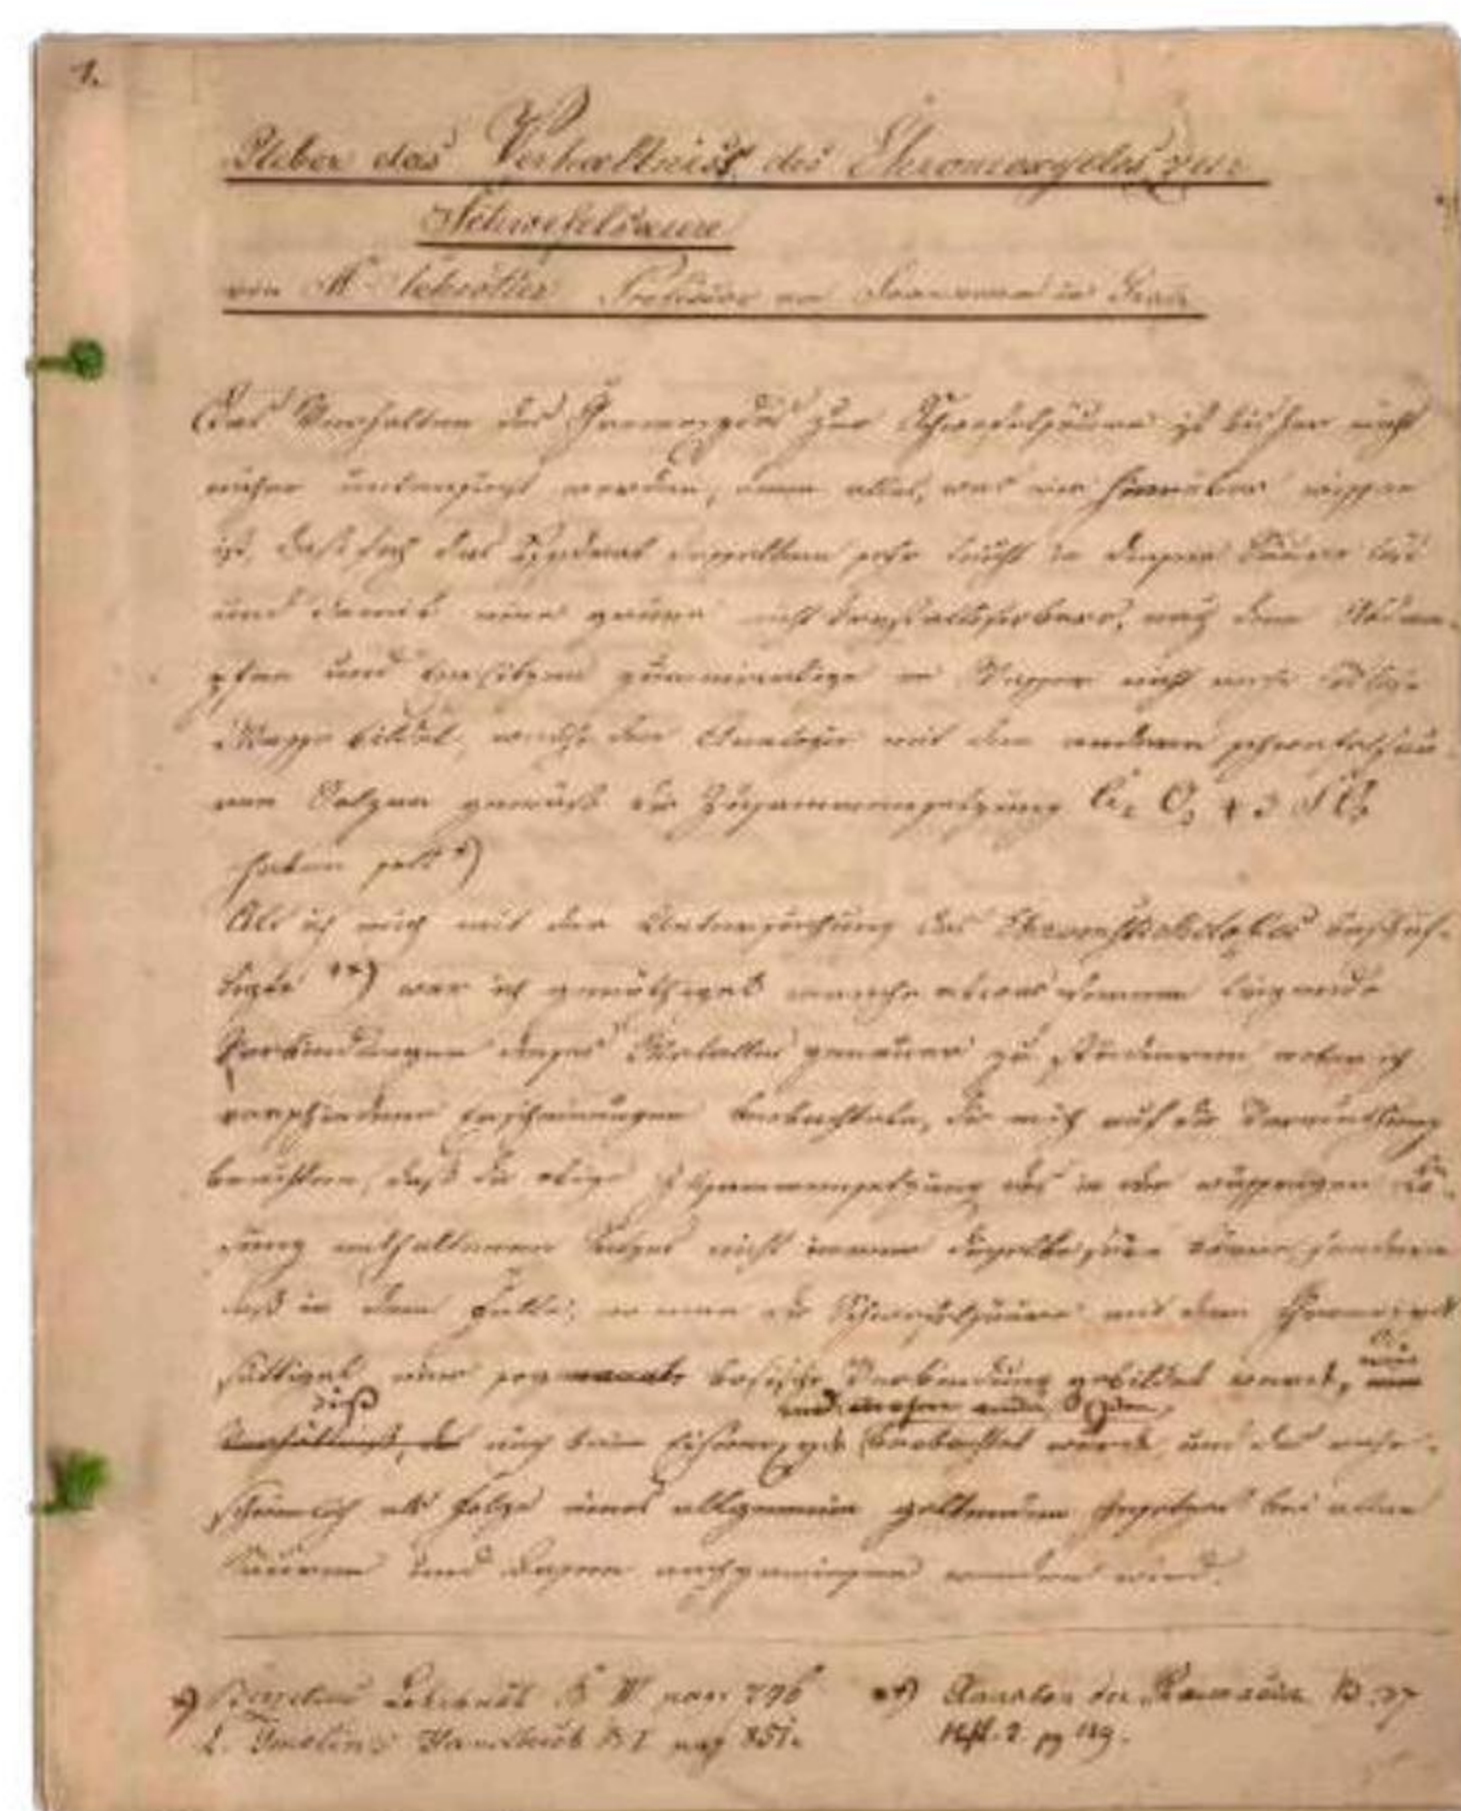 1.
Ueber das Verhaeltniss des Chromoxydes zur
Schwefelsaeure
von A Schrötter Professor am Joanneum in Graz
Das Verhalten des Chromoxydes zur Schwefelsäure ist bisher nicht
näher untersucht worden, denn alles, was wir hierüber wissen
ist, daß sich das Hydrat desselben sehr leicht in dieser Säure löst
und damit eine grüne nicht krystallisirbare, nach dem Abdam-
pfen und Erhitzen gummiartige im Wasser nicht mehr lösliche
Masse bildet, welche der Analogie mit den anderen schwefelsau-
ren Salzen gemäß die Zusammensetzung Cr₂ O₃ + 3 SO₃
haben soll *)
Als ich mich mit der Untersuchung des beschäf-
tigte **) war ich genöthiget manche etwas ferne liegende
Verbindungen dieses Metalles genauer zu studieren wobei ich
verschiedene Erscheinungen beobachtete, die mich auf die Vermuthung
brachten, daß die obige Zusammensetzung des in der wässrigen Lö-
sung enthaltenen Salzes nicht immer dieselbe sein könne sondern
daß in dem Falle, wo man die Schwefelsäure mit dem Chromoxyd
sättiget eine basische Verbindung gebildet werde,
dieß und mehren anderen Oxyden
auch beim Eisenoxyde beobachtet wurde, und das wahr-
scheinlich als Folge eines allgemein geltenden Gesetzes bei allen
Säuren und Basen nachgewiesen werden wird.
*) Berzelius Lehrbuch B IV pag 796
L. Gmelins Handbuch B I pag 851.
**) Annalen der Pharmacie B. 37
Heft. 2. pg 129.